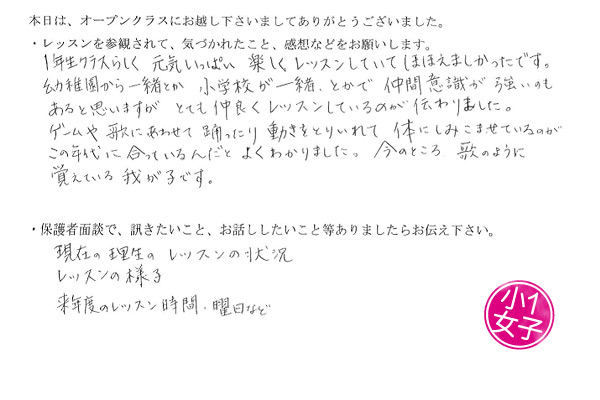 本日は、オープンクラスにお越し下さいましてありがとうございました。
・レッスンを参観されて、気づかれたこと、感想などをお願いします。
1年生クラスらしく 元気いっぱい 楽しくレッスンしていてほほえましかったです。
幼稚園から一緒とか 小学校が一緒、とかで 仲間意識が強いのも
あると思いますが とても仲良くレッスンしているのが伝わりました。
ゲームや 歌にあわせて 踊ったり 動きをとりいれて 体にしみこませているのが
この年代に 合っているんだと よくわかりました。 今のところ 歌のように
覚えている 我が子です。
・保護者面談で、訊きたいこと、お話ししたいこと等ありましたらお伝え下さい。
現在の 理生の レッスンの状況
レッスンの様子
来年度のレッスン時間、曜日など
小1
女子